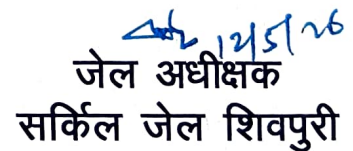 12/5/26
जेल अधीक्षक
सर्किल जेल शिवपुरी